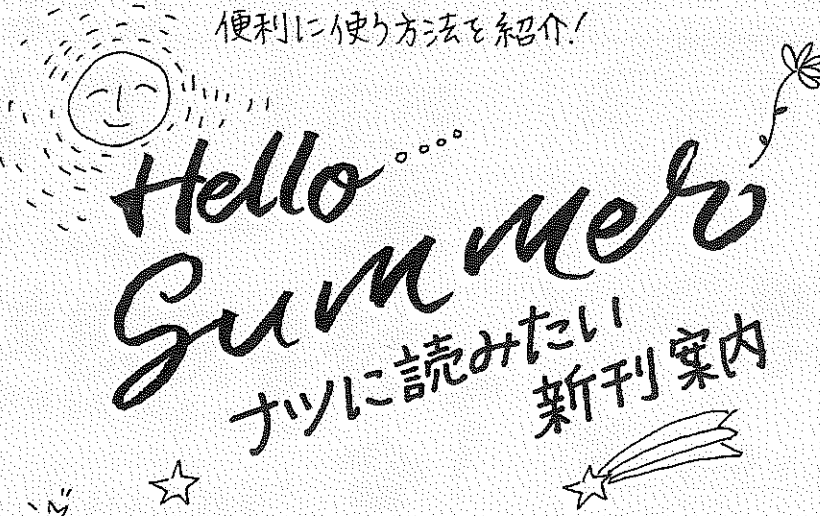 便利に使う方法を紹介!
Hello....
Summer
ナツに読みたい
新刊案内